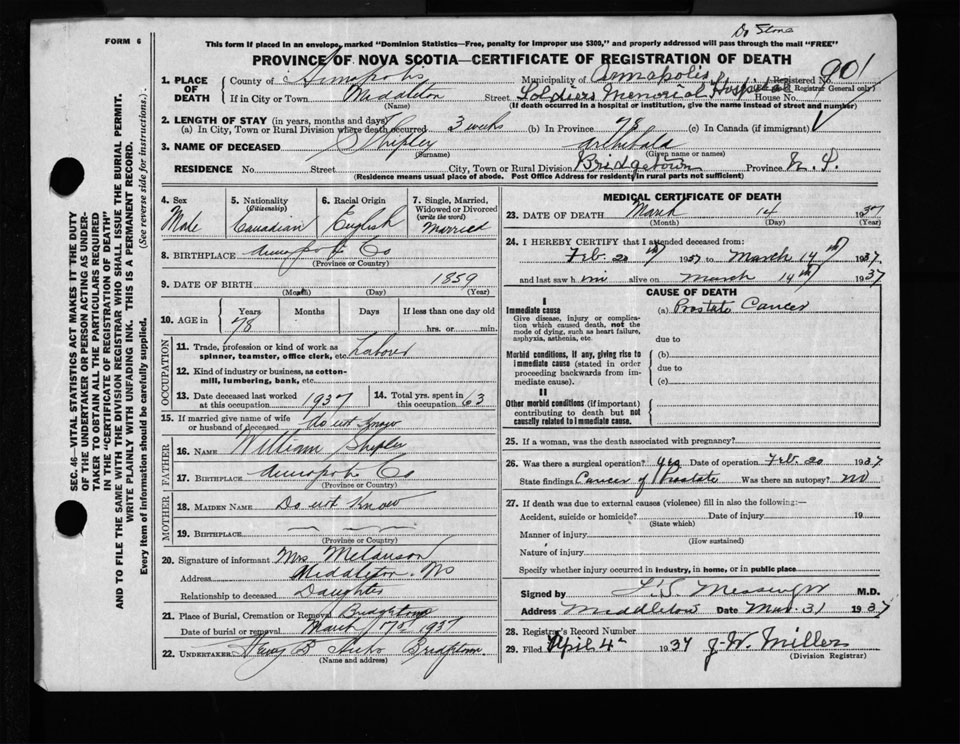 Dr Stone
FORM 6
This form if placed in an envelope, marked "Dominion Statistics—Free, penalty for improper use $300," and properly addressed will pass through the mail "FREE"
PROVINCE OF NOVA SCOTIA—CERTIFICATE OF REGISTRATION OF DEATH
1. PLACE OF DEATH
County of Annapolis Municipality of Annapolis Registered No. 901
(Registrar General only)
If in City or Town Middleton Street Soldiers Memorial Hospital House No.
(Name) (If death occurred in a hospital or institution, give the name instead of street and number)
2. LENGTH OF STAY (in years, months and days)
(a) In City, Town or Rural Division where death occurred 3 weeks (b) In Province 78 (c) In Canada (if immigrant)
3. NAME OF DECEASED Shipley Archibald
(Surname) (Given name or names)
RESIDENCE No. Street City, Town or Rural Division Bridgetown Province N.S.
(Residence means usual place of abode. Post Office Address for residents in rural parts not sufficient)
SEC. 46—VITAL STATISTICS ACT MAKES IT THE DUTY
OF THE UNDERTAKER OR PERSON ACTING AS UNDER-
TAKER TO OBTAIN ALL THE PARTICULARS REQUIRED
IN THE "CERTIFICATE OF REGISTRATION OF DEATH"
AND TO FILE THE SAME WITH THE DIVISION REGISTRAR WHO SHALL ISSUE THE BURIAL PERMIT.
WRITE PLAINLY WITH UNFADING INK. THIS IS A PERMANENT RECORD.
Every item of information should be carefully supplied. (See reverse side for instructions.)
4. Sex
Male
5. Nationality
(Citizenship)
Canadian
6. Racial Origin
English
7. Single, Married, Widowed or Divorced
(write the word)
Married
8. BIRTHPLACE Annapolis Co
(Province or Country)
9. DATE OF BIRTH 1859
(Month) (Day) (Year)
10. AGE in Years 78 Months Days If less than one day old
hrs. or min.
OCCUPATION
11. Trade, profession or kind of work as
spinner, teamster, office clerk, etc. Laborer
12. Kind of industry or business, as cotton-
mill, lumbering, bank, etc.
13. Date deceased last worked
at this occupation 1937
14. Total yrs. spent in
this occupation 63
15. If married give name of wife
or husband of deceased do not know
FATHER
16. NAME William Shipley
17. BIRTHPLACE Annapolis Co
(Province or Country)
MOTHER
18. MAIDEN NAME Do not Know
19. BIRTHPLACE
(Province or Country)
20. Signature of informant Mrs Melanson
Address Middleton NS
Relationship to deceased Daughter
21. Place of Burial, Cremation or Removal Bridgetown
Date of burial or removal March 17 1937
22. UNDERTAKER B Hicks Bridgetown
(Name and address)
MEDICAL CERTIFICATE OF DEATH
23. DATE OF DEATH March 14 1937
(Month) (Day)
24. I HEREBY CERTIFY that I attended deceased from:
Feb. 20th 1937 to March 14th 1937
and last saw him alive on March 14th 1937
CAUSE OF DEATH
I
Immediate cause
Give disease, injury or compli-
cation which caused death, not the
mode of dying, such as heart failure,
asphyxia, asthenia, etc.
(a) Prostate Cancer
due to
Morbid conditions, if any, giving rise to
immediate cause (stated in order
proceeding backwards from im-
mediate cause).
(b)
due to
(c)
II
Other morbid conditions (if important)
contributing to death but not
causally related to immediate cause.
25. If a woman, was the death associated with pregnancy?
26. Was there a surgical operation? yes Date of operation Feb. 20 1937
State findings Cancer of Prostate Was there an autopsy? no
27. If death was due to external causes (violence) fill in also the following:—
Accident, suicide or homicide? Date of injury 19
(State which)
Manner of injury
(How sustained)
Nature of injury
Specify whether injury occurred in industry, in home, or in public place
Signed by L.S. Messenger M.D.
Address Middleton Date Mar. 31 1937
28. Registrar's Record Number
29. Filed April 4 1937 J.W. Miller
(Division Registrar)